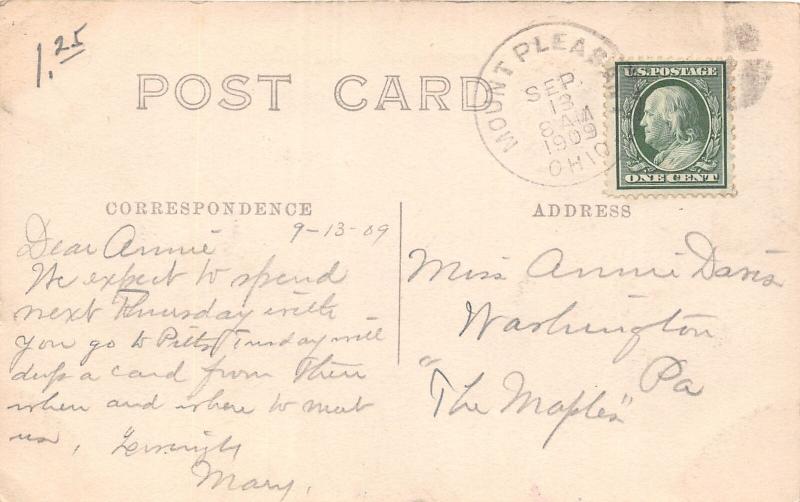 1.25
POST CARD
MOUNT PLEASA
SEP.
13
8 AM
1909
OHIO
U.S. POSTAGE
ONE CENT
CORRESPONDENCE
ADDRESS
9-13-09
Dear Annie
We expect to spend
next Thursday with
you go to Pitts Tuesday will
drop a card from there
when and where to meet
us. Lovingly
Mary.
Miss Annie Davis
Washington
Pa
"The Maples"